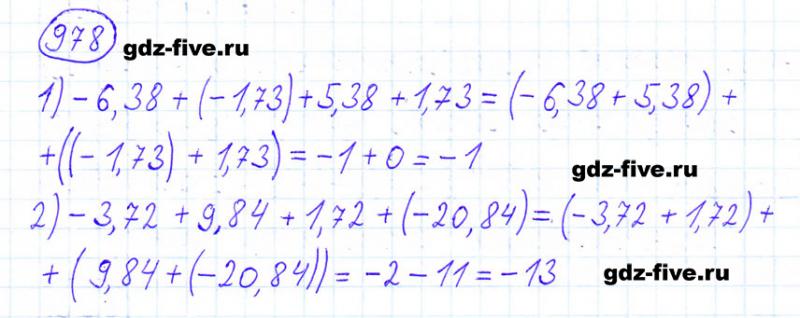 978 gdz-five.ru
1) -6,38 + (-1,73) + 5,38 + 1,73 = (-6,38 + 5,38) +
+ ((-1,73) + 1,73) = -1 + 0 = -1
gdz-five.ru
2) -3,72 + 9,84 + 1,72 + (-20,84) = (-3,72 + 1,72) +
+ (9,84 + (-20,84)) = -2 - 11 = -13 gdz-five.ru